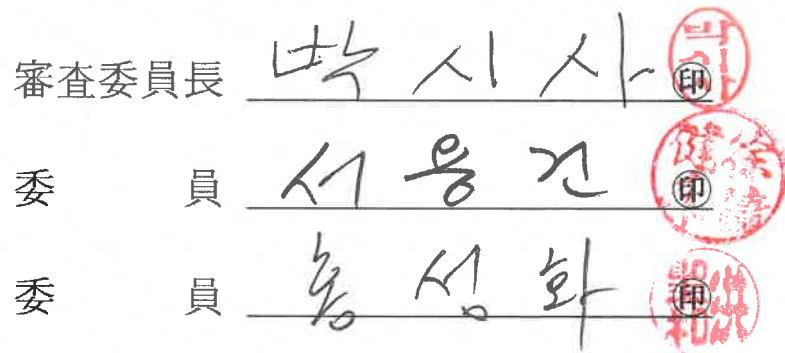 審査委員長 박시사 印
委 員 서용건 印
委 員 홍성화 印